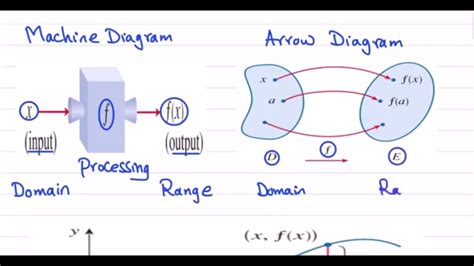 Machine Diagram
x
(input)
f
f(x)
(output)
Processing
Domain
Range
Arrow Diagram
x
f(x)
a
f(a)
D
f
E
Domain
Ra
y
(x, f(x))